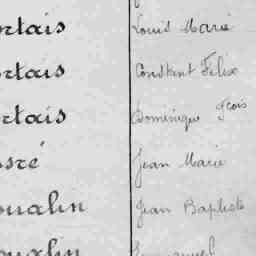 rtais Louis Marie
rtais Constant Félix
rtais Dominique Fcois
sré Jean Marie
oualin Jean Baptiste
oualin Emmanuel